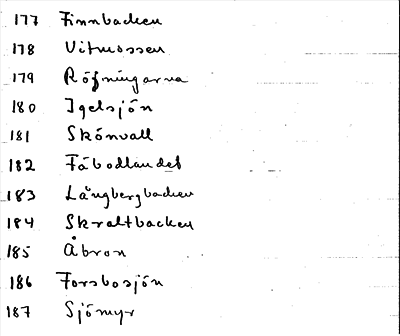 177 Finnbacken
178 Vitmossen
179 Röjningarna
180 Igelsjön
181 Skönvall
182 Fäbodlandet
183 Långbergbacken
184 Skraltbacken
185 Åbron
186 Forsbosjön
187 Sjömyr